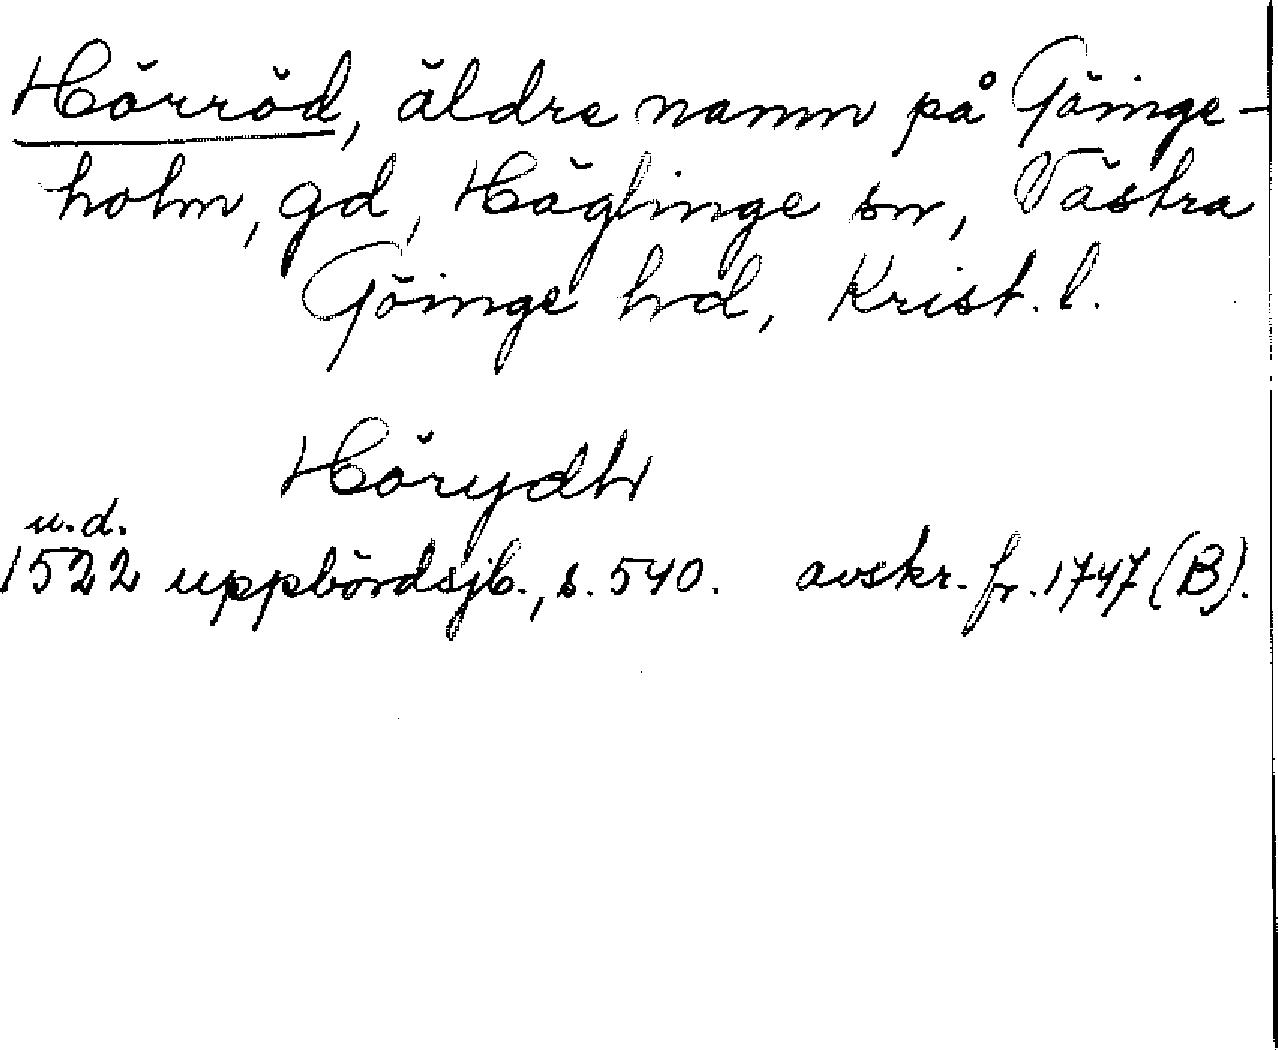 Hörröd, äldre namn på Göinge-
holm, gd, Häglinge sn, Västra
Göinge hd, Krist. l.
Hörydh
u.d.
1522 uppbördsjb., s. 540. avskr. fr. 1747 (B).